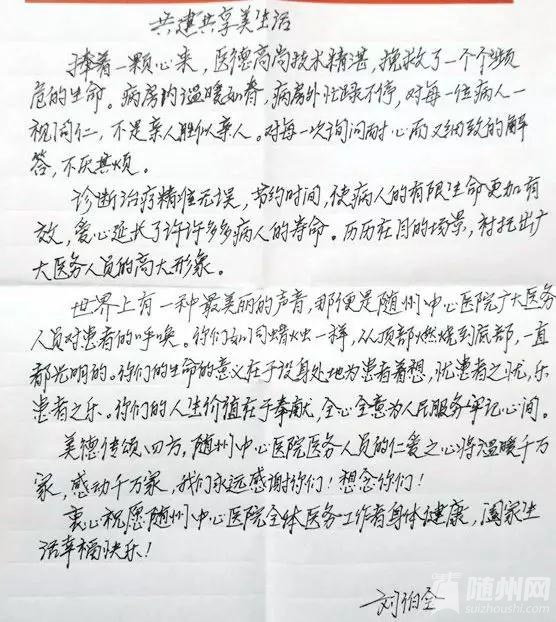 共建共享美生活
捧着一颗心来，医德高尚技术精湛，挽救了一个个频
危的生命。病房内温暖如春，病房外忙碌不停，对每一位病人一
视同仁，不是亲人胜似亲人。对每一次询问耐心而又细致的解
答，不厌其烦。
诊断治疗精准无误，节约时间，使病人的有限生命更加有
效，爱心延长了许许多多病人的寿命。历历在目的场景，衬托出广
大医务人员的高大形象。
世界上有一种最美丽的声音，那便是随州中心医院广大医务
人员对患者的呼唤。你们如同蜡烛一样，从顶部燃烧到底部，一直
都光明的。你们的生命的意义在于设身处地为患者着想，忧患者之忧，乐
患者之乐。你们的人生价值在于奉献，全心全意为人民服务牢记心间。
美德传颂四方，随州中心医院医务人员的仁爱之心将温暖千万
家，感动千万家，我们永远感谢你们！想念你们！
衷心祝愿随州中心医院全体医务工作者身体健康，阖家生
活幸福快乐！
刘伯全
随州网
suizhoushi.com